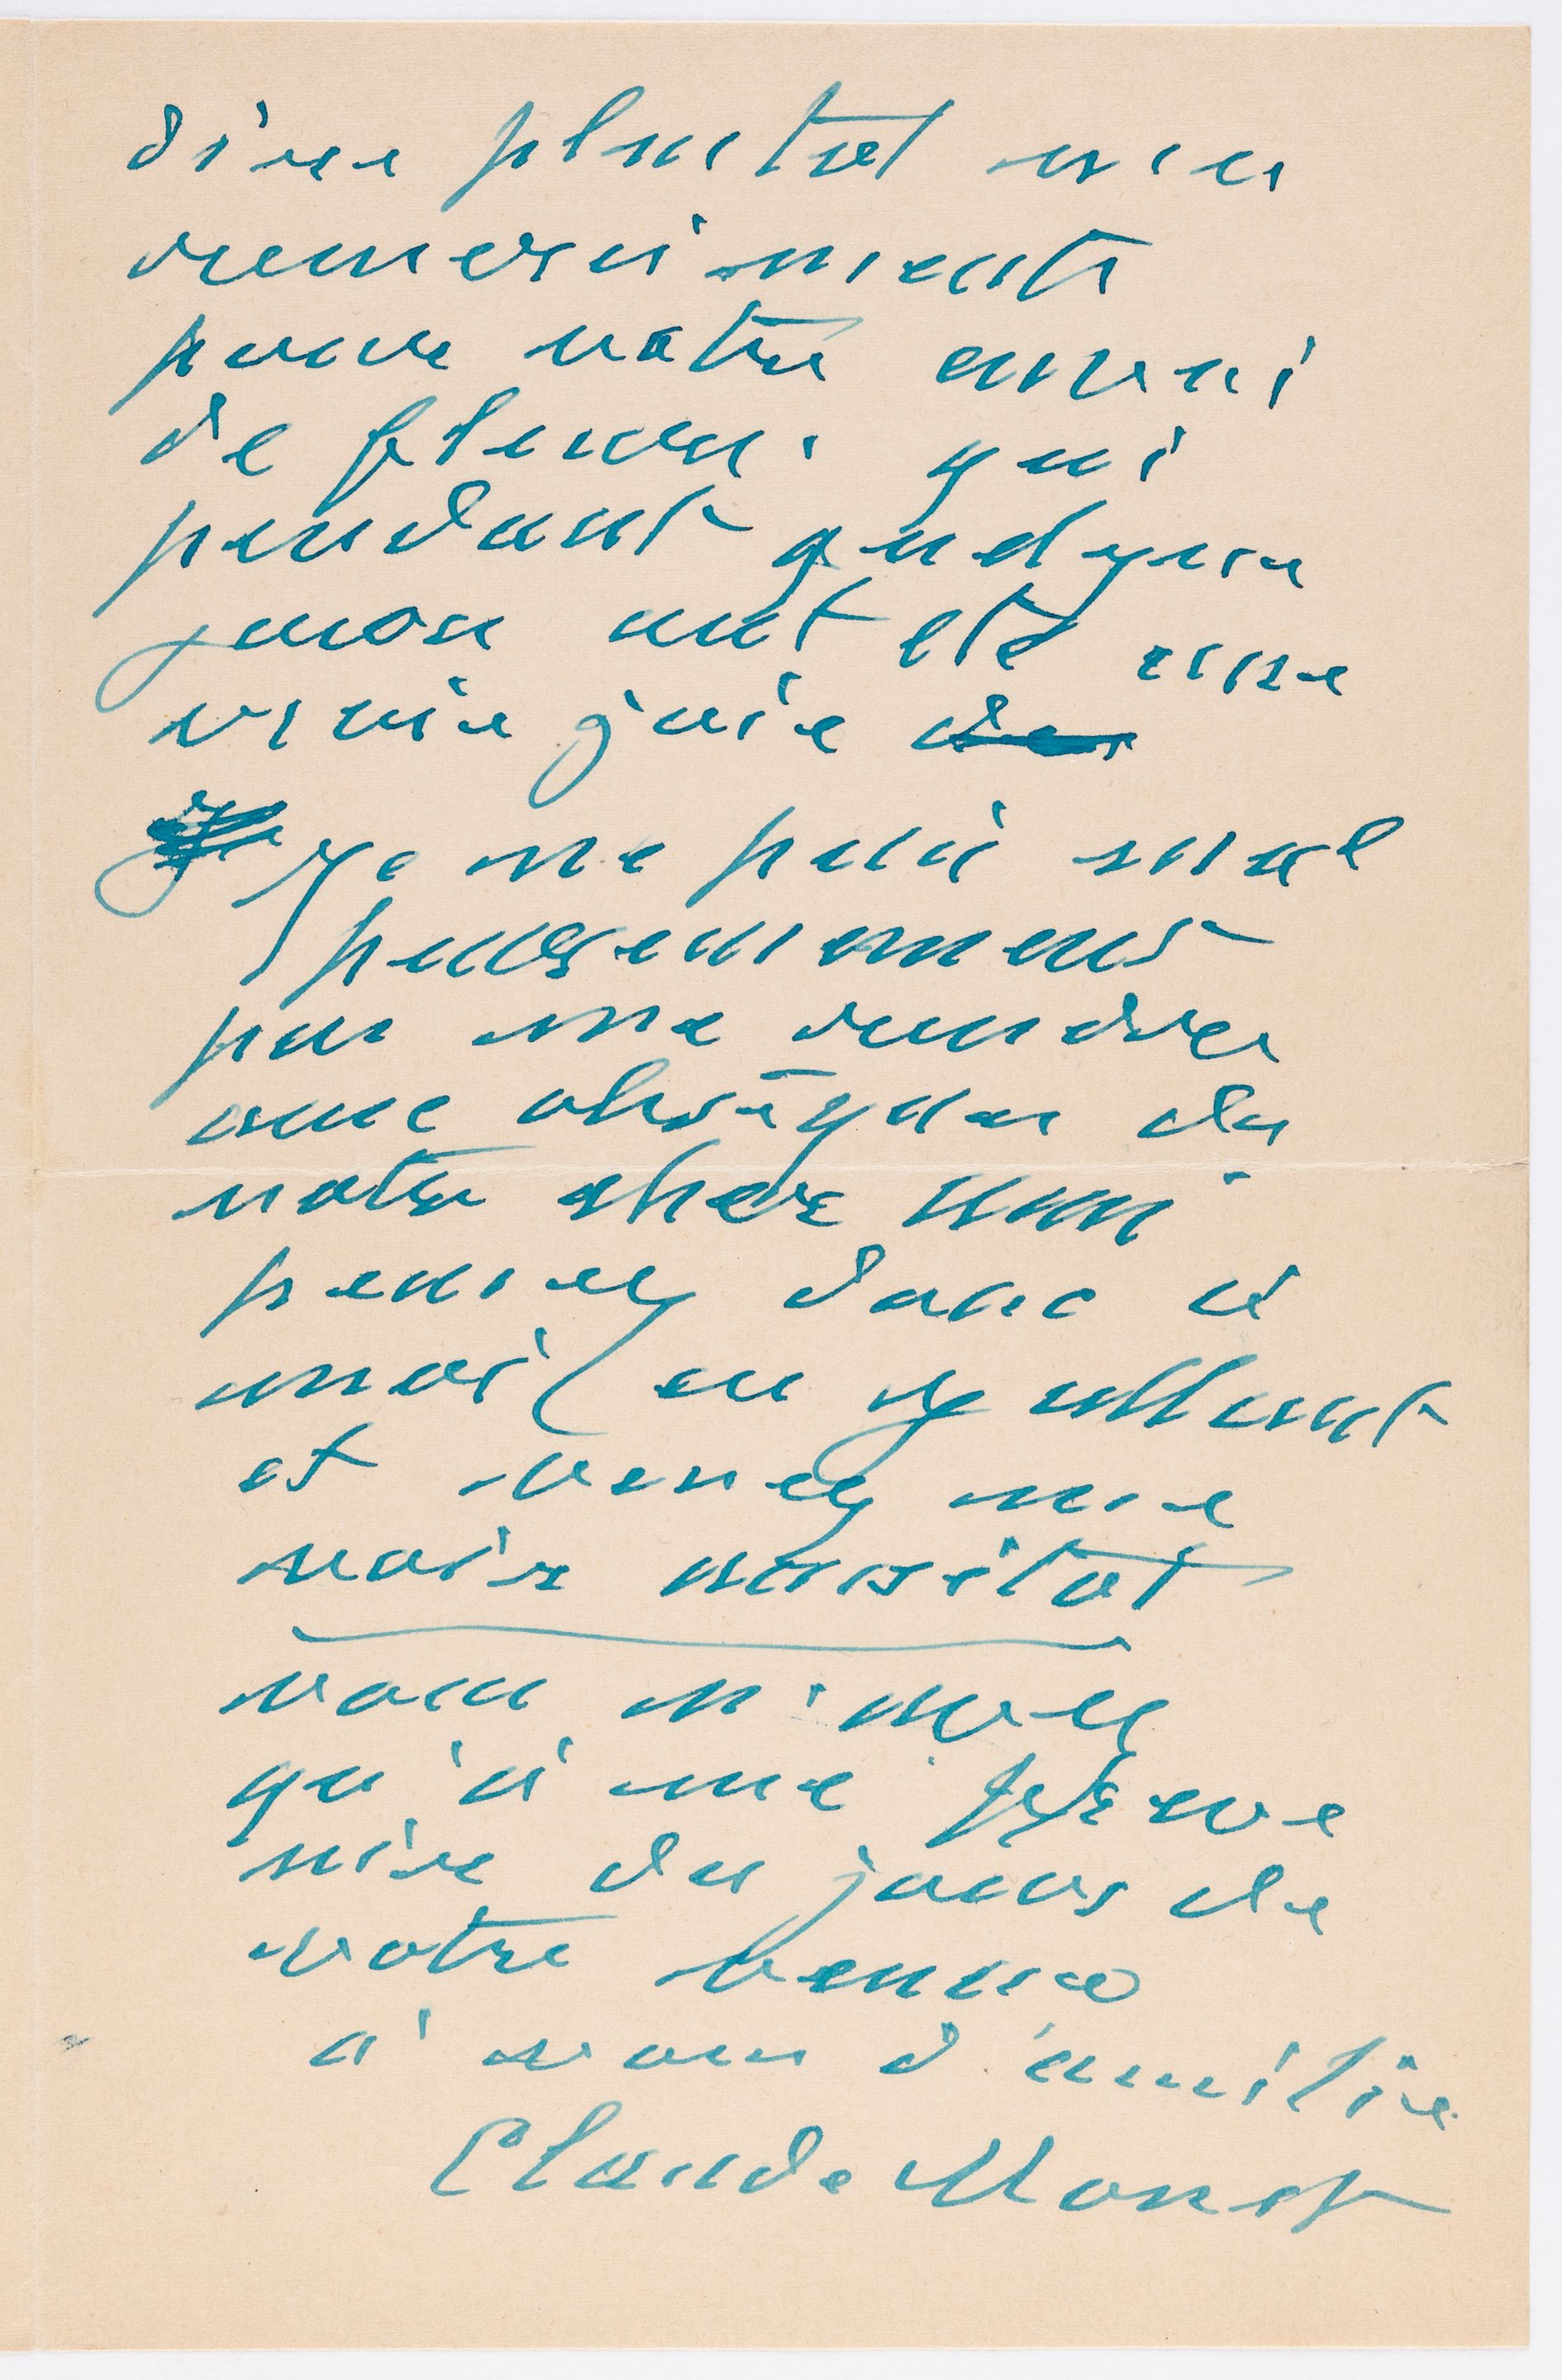 dire plutot mes
remerciments
pour votre envoi
de fleurs qui
pendant quelques
jours ont été une
vraie joie
Je ne puis mal
heureusement
pas me rendre
aux obsèques de
notre cher ami
pensez donc à
moi en y allant
et venez me
voir aussitot
vous n'avez
qu'à me préve
nir du jour de
votre venue
a vous d'amitié
Claude Monet